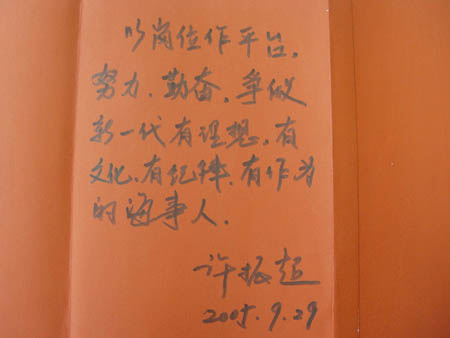 以岗位作平台,
努力、勤奋,争做
新一代有理想,有
文化、有纪律、有作为
的海事人.
许振超
2005.9.29